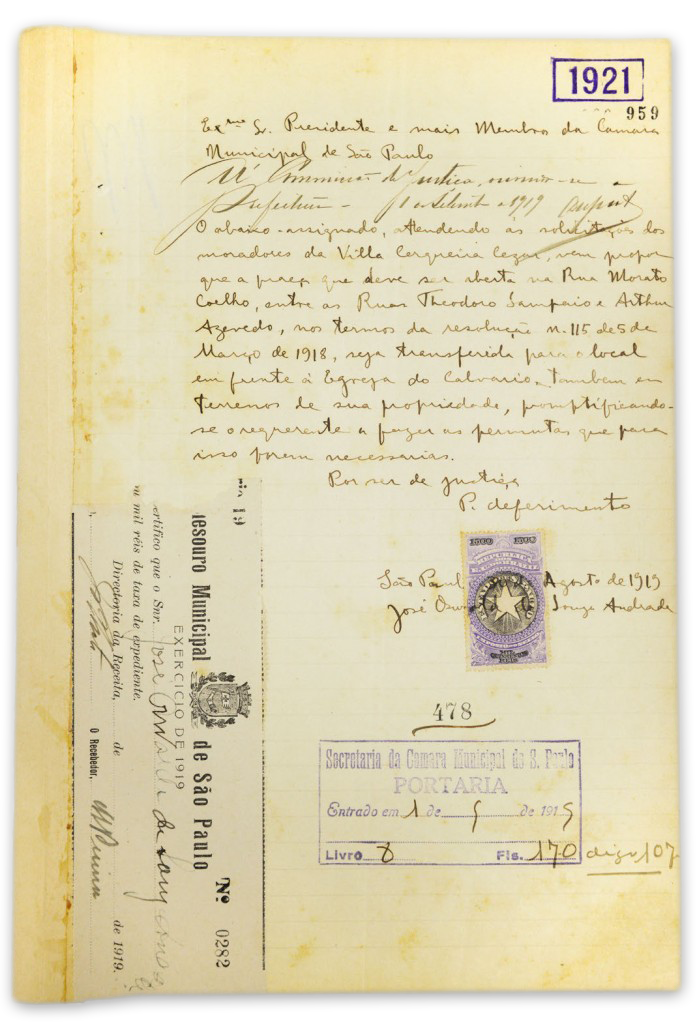 1921
959
Exmo Sr. Presidente e mais Membros da Camara
Municipal de São Paulo
Á Commissão de Justiça,
Prefeitura 1 de Setembro 1919
O abaixo-assignado, attendendo ás solicitações dos
moradores da Villa Cerqueira Cezar, vem propor
que a praça que deve ser aberta na Rua Morato
Coelho, entre as Ruas Theodoro Sampaio e Arthur
Azevedo, nos termos da resolução n. 115 de 5 de
Março de 1918, seja transferida para o local
em frente á Egreja do Calvario, tambem em
terrenos de sua propriedade, promptificando-
se o requerente a fazer as permutas que para
isso forem necessarias.
Por ser de justiça
P. deferimento
São Paulo Agosto de 1919
José Souza Andrade
REPUBLICA
478
Secretaria da Camara Municipal de S. Paulo
PORTARIA
Entrado em 1 de 9 de 1919
Livro 8 Fls. 170 digo 107
19
Tesouro Municipal de São Paulo
Nº 0282
EXERCICIO DE 1919
ertifico que o Snr. José
mil réis de taxa de expediente.
Directoria da Receita, de de 1919.
O Recebedor,